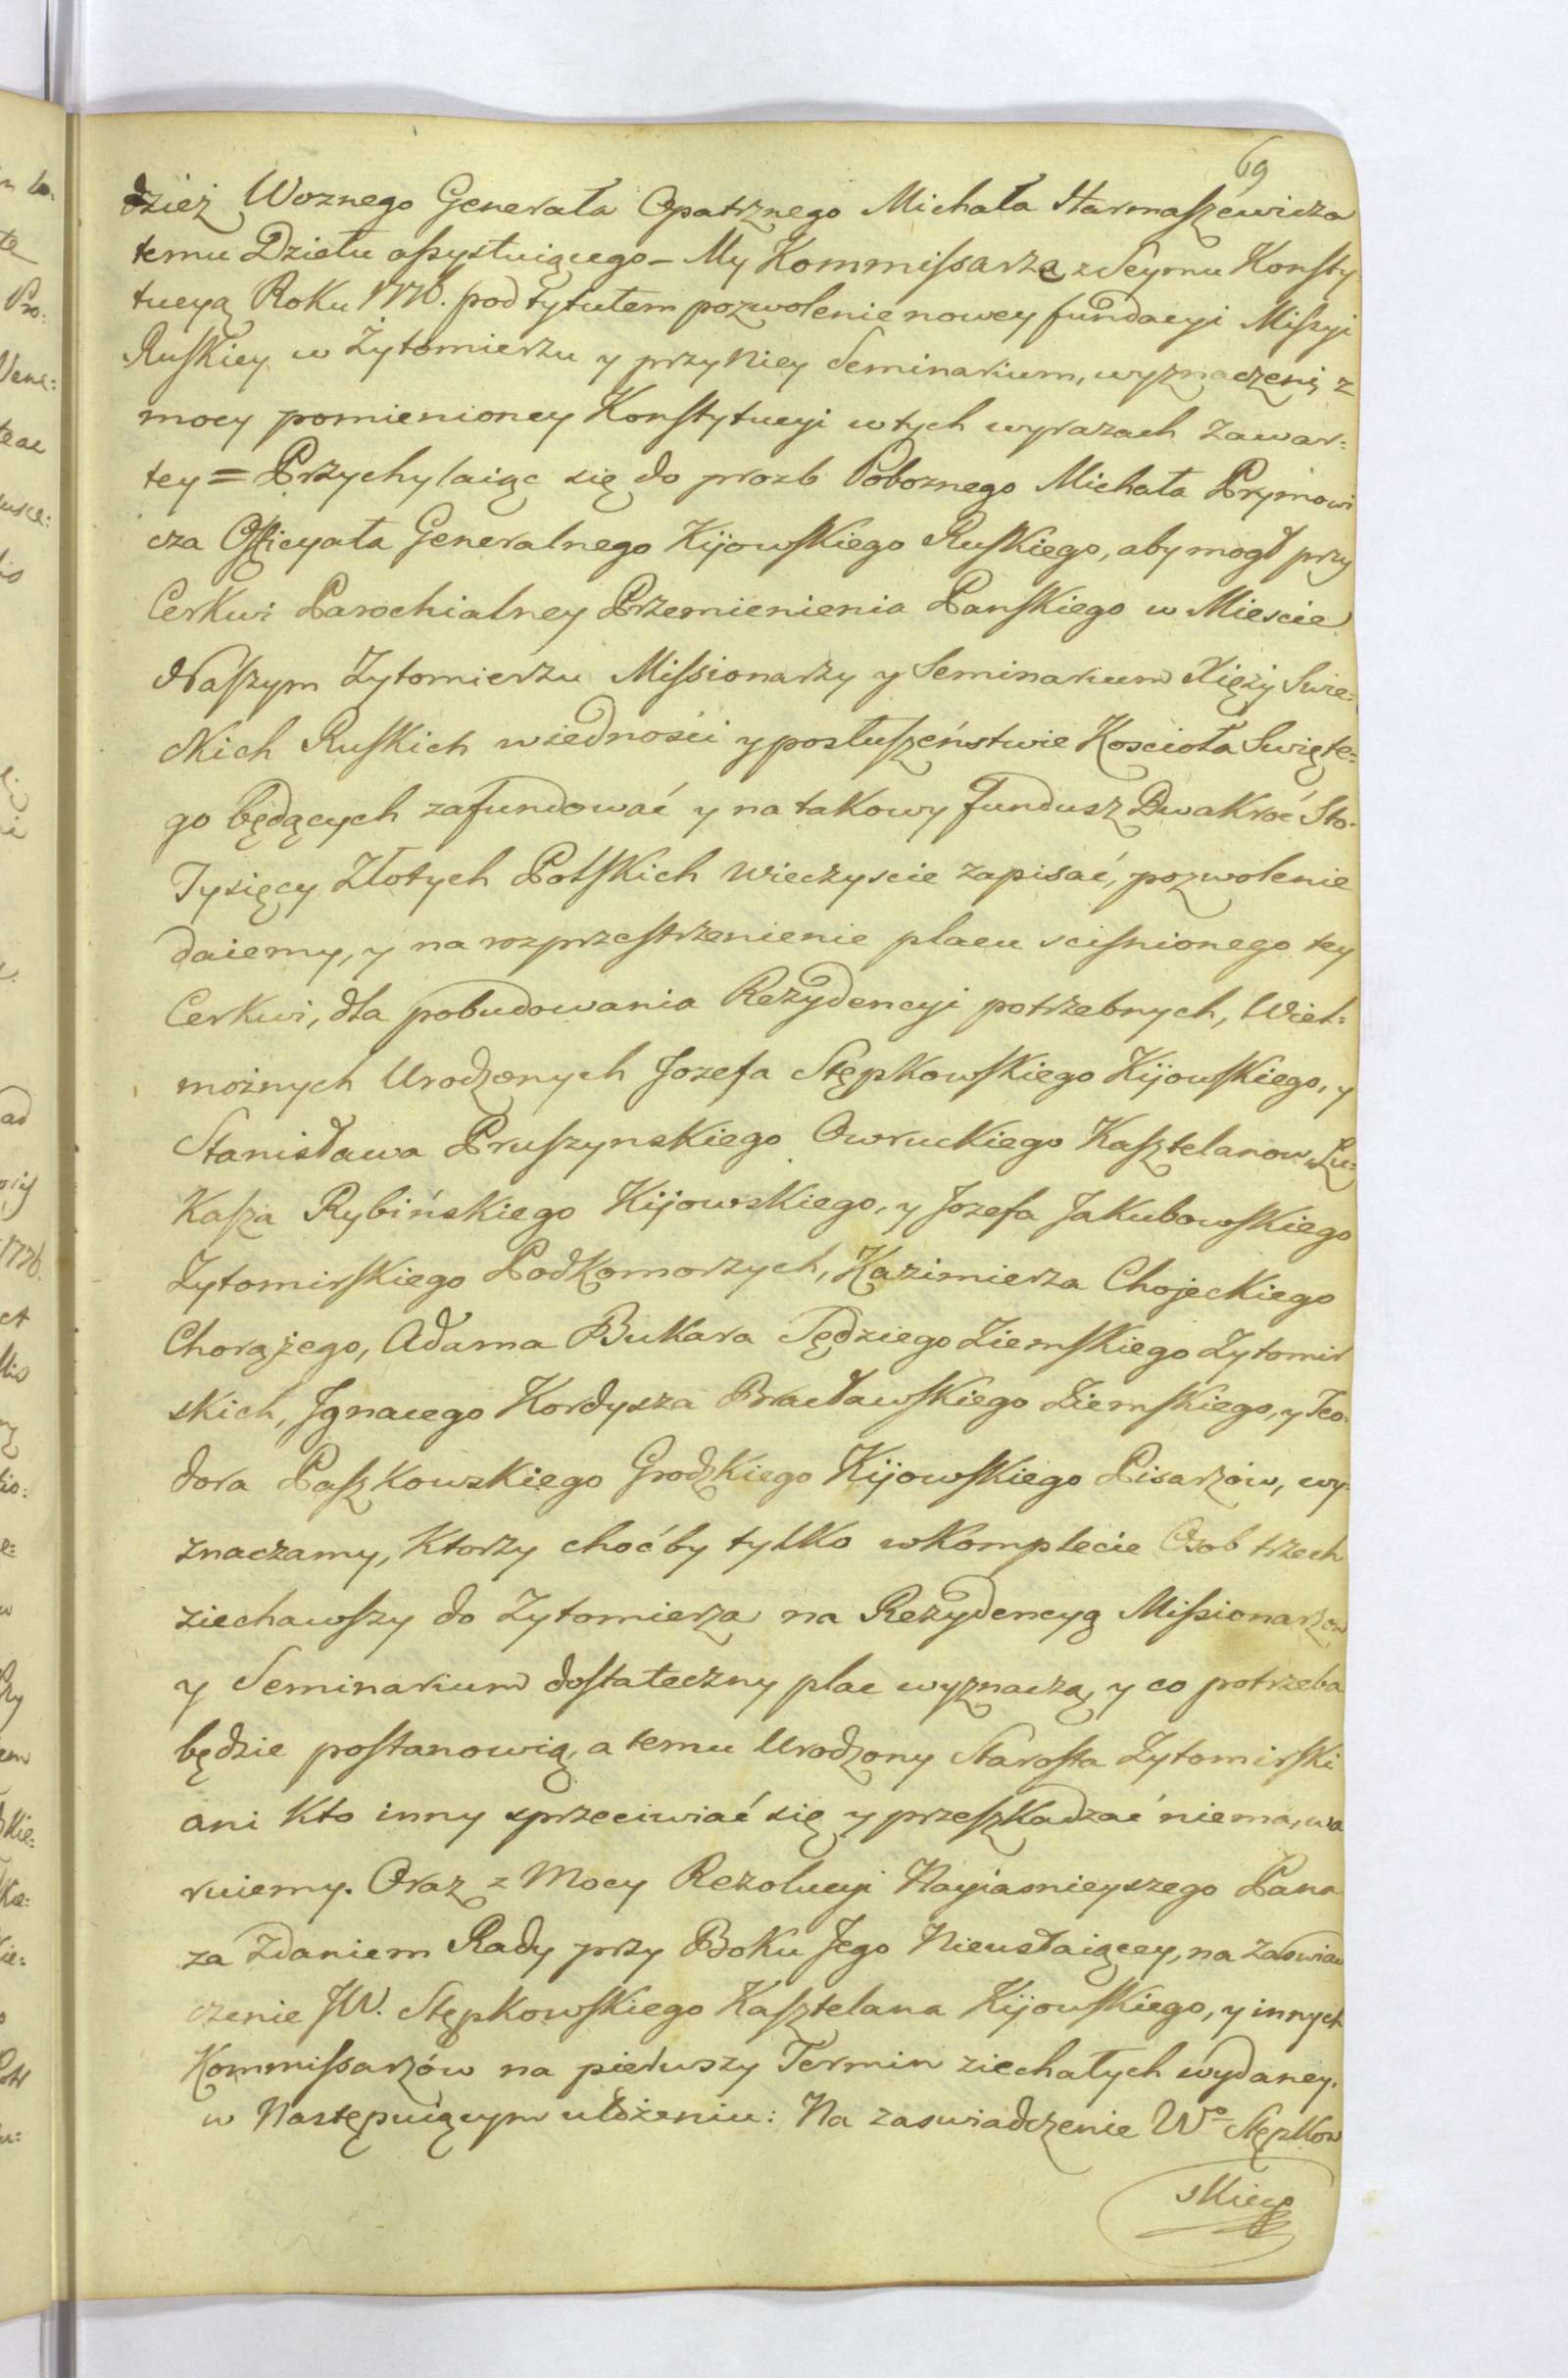 69
dzież Woznego Generała Opatrznego Michała Harmaszewicza
temu Dziełu assystuiącego – My Kommissarze z Seymu Konsty
tucyą Roku 1776. pod tytułem pozwolenie nowey fundacyi Missyi
Ruskiey w Żytomierzu y przy Niey Seminarium, wyznaczeni z
mocy pomienioney Konstytucyi w tych wyrazach zawar:
tey = Przychylaiąc się do prozb Poboznego Michała Prymowi
cza Officyała Generalnego Kijowskiego Ruskiego, aby mogł przy
Cerkwi Parochialney Przemienienia Panskiego w Miescie
Naszym Zytomierzu Missionarzy y Seminarium Xięży Swie:
ckich Ruskich w iednosci y posłuszeństwie Koscioła Swięte:
go będących zafundować y na takowy fundusz Dwakroć Sto
Tysięcy Złotych Polskich wieczyscie zapisać, pozwolenie
daiemy, y na rozprzestrzenienie placu scisnionego tey
Cerkwi, dla pobudowania Rezydencyi potrzebnych, Wiel:
możnych Urodzonych Jozefa Stępkowskiego Kijowskiego, y
Stanisława Pruszynskiego Owruckiego Kasztelanow, Łu:
kasza Rybińskiego Kijowskiego, y Jozefa Jakubowskiego
Zytomirskiego Podkomorzych, Kazimierza Chojeckiego
Chorążego, Adama Bukara Sędziego Ziemskiego Zytomir
skich, Jgnacego Kordysza Bracławskiego Ziemskiego, y Teo:
dora Paszkowskiego Grodzkiego Kijowskiego Pisarzów, wy:
znaczamy, ktorzy choćby tylko w komplecie Osob trzech
ziechawszy do Zytomierza na Rezydencyą Missionarzow
y Seminarium dostateczny plac wyznaczą, y co potrzeba
będzie postanowią, a temu Urodzony Starosta Zytomirski
ani kto inny sprzeciwiać się y przeszkadzać niema, wa
ruiemy. Oraz z Mocy Rezolucyi Nayiasnieyszego Pana
za Zdaniem Rady przy Boku Jego Nieustaiącey, na Zaswiad
czenie JW. Stępkowskiego Kasztelana Kijowskiego, y innych
Kommissarzów na pierwszy Termin ziechałych wydaney.
w Następuiącym ułożeniu: Na zaswiadczenie Wo Stępkow
skiego